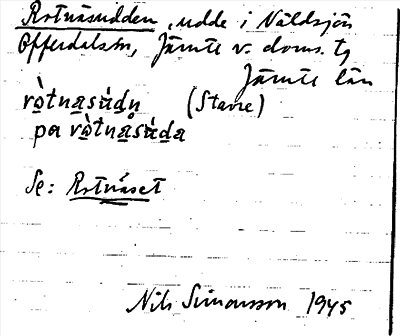 Rotnäsudden, udde i Näldsjön
Offerdalsån, Jämtl v. doms. tg
Jämtl län
rò̱tna̱sú̱dṇ (Stavre)
pa rò̱tnå̱sú̱da
Se: Rotnäset
Nils Simonsson 1945